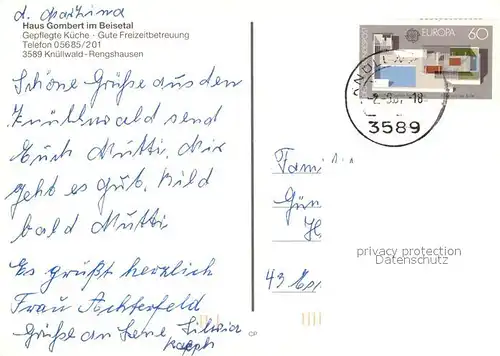 L. Martina
Haus Gombert im Beisetal
Gepflegte Küche · Gute Freizeitbetreuung
Telefon 05685/201
3589 Knüllwald-Rengshausen
Schöne Grüße aus den
Knüllwald send
Euch Mutti. Mir
geht es gut. Bild
bald Mutti
Es grüßt herzlich
Frau Achterfeld
Grüße an Lene Silvia
EUROPA 60
3589
Fam
Gün
43 Ess
privacy protection
Datenschutz
CP